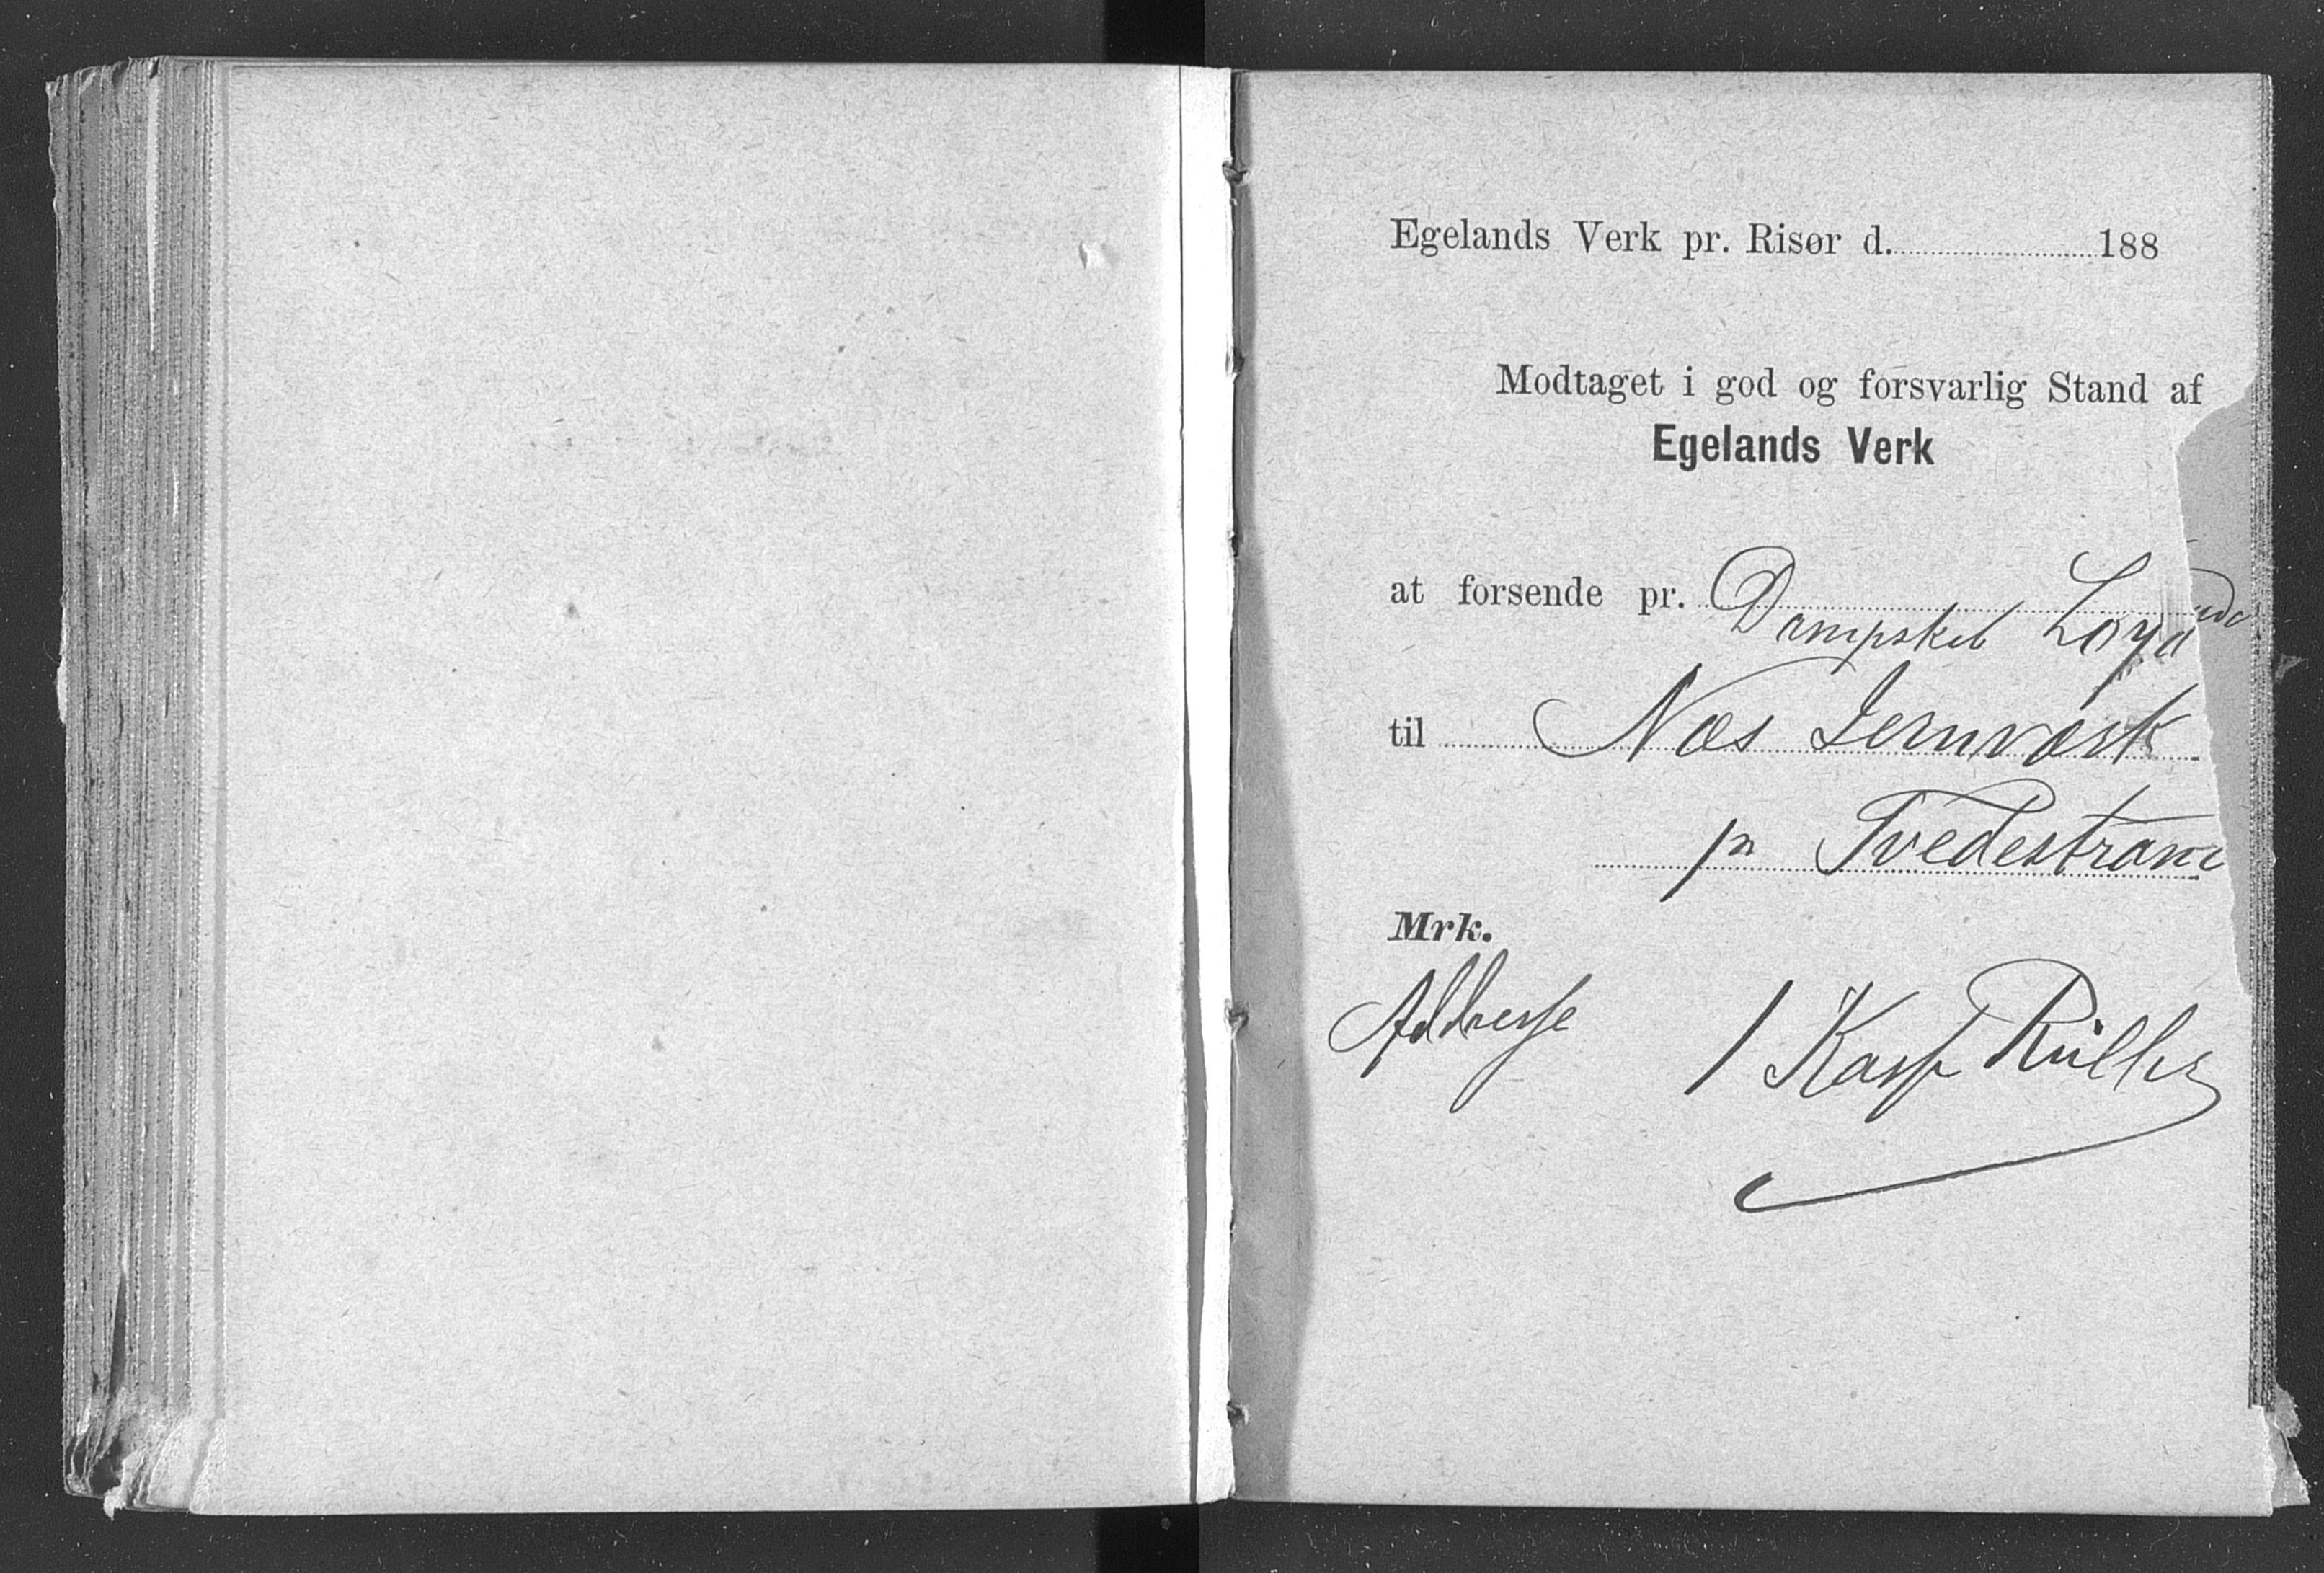 Egelands Verk pr. Risør d. 188
Modtaget i god og forsvarlig Stand af
Egelands Verk
at forsende pr. Dampskib Loyd
til Næs Jernværk
pr Tvedestran
Mrk.
Addresse / Kasp